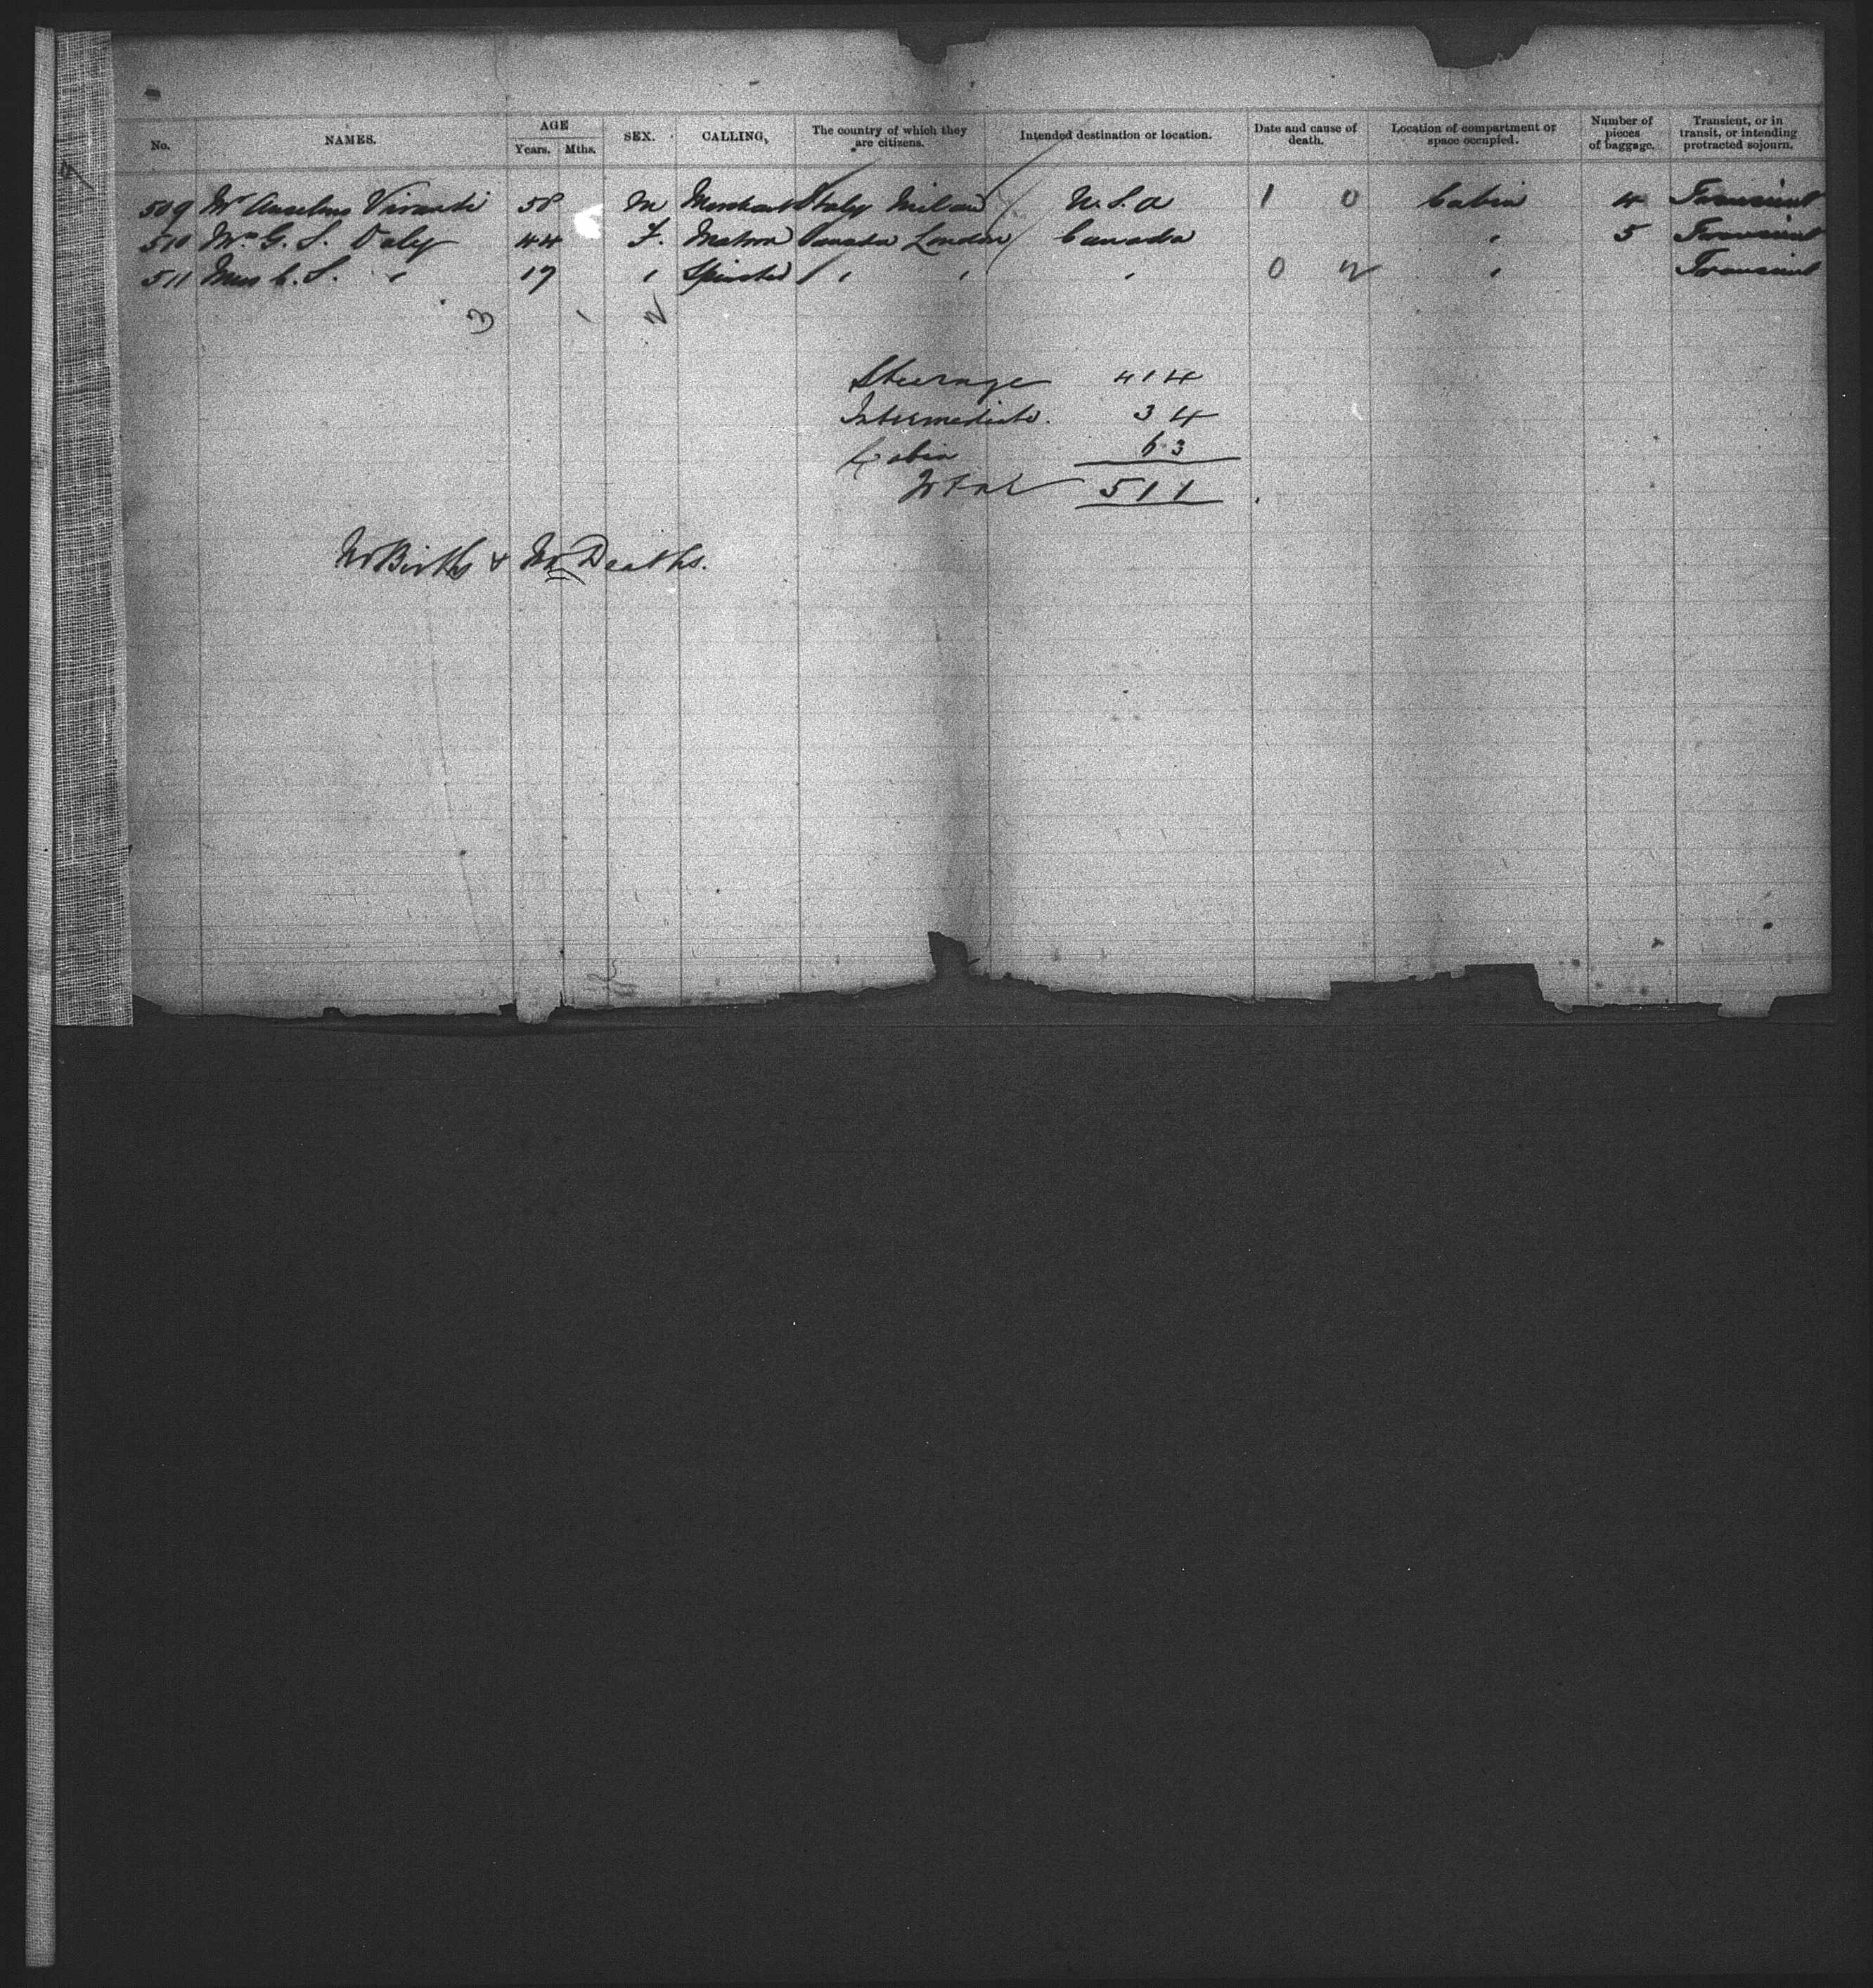 No. NAMES. AGE Years. Mths. SEX. CALLING, The country of which they are citizens. Intended destination or location. Date and cause of death. Location of compartment or space occupied. Number of pieces of baggage. Transient, or in transit, or intending protracted sojourn.
509 Mr Anselmo Vivanti 58 M Merchant Italy Milan U.S.A 1 0 Cabin 4 Transient
510 Mrs G. S. Daly 44 F. Matron Canada London Canada " 5 Transient
511 Miss C. S. " 17 " Spinster " " " 0 2 " Transient
3 1 2
Steerage 414
Intermediate. 34
Cabin 63
Total 511
No Births & No Deaths.